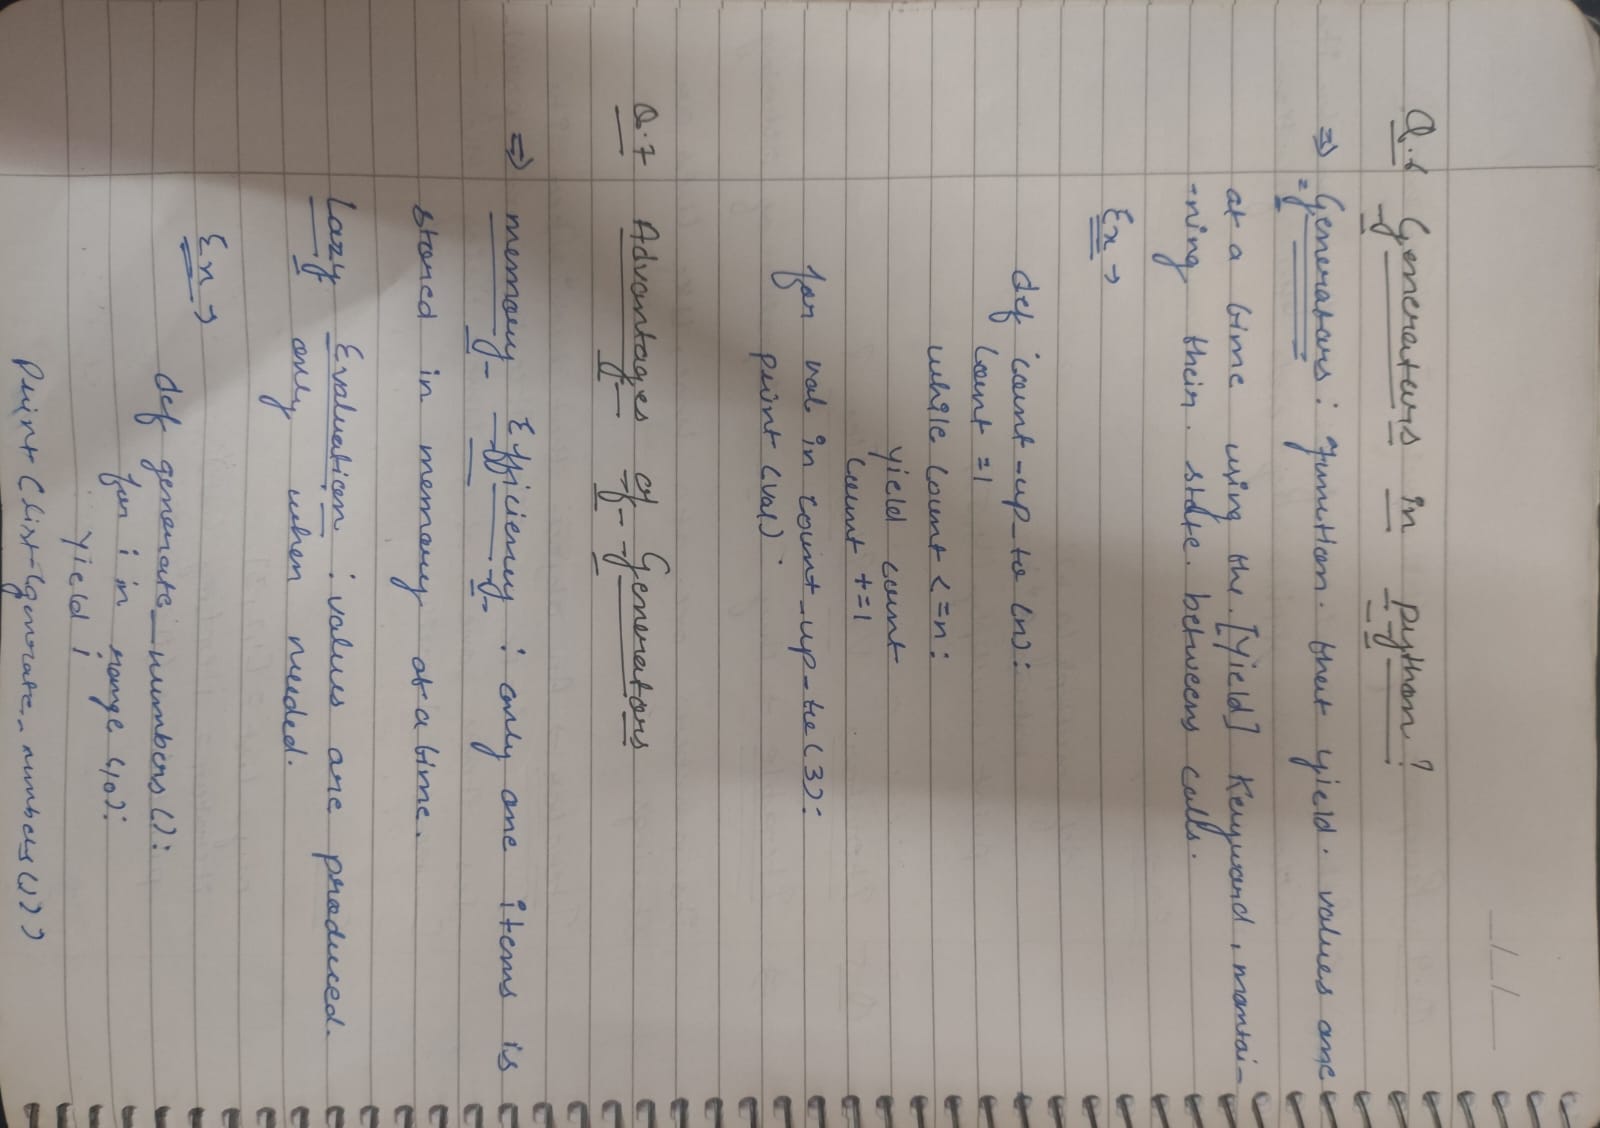 __/__/____
Q.6 Generators in python?
⇒ Generators : Function that yield values one
at a time using the [Yield] Keyword, mantai-
-ning their state betweens calls.
Ex →
def count_up_to (n):
count =1
while count <=n:
yield count
count +=1
for val in count_up_to (3):
print (val)
Q.7 Advantages of Generators
⇒ memory Efficiency : only one items is
stored in memory at a time.
Lazy Evaluation : values are produced.
only when needed.
Ex →
def generate_numbers ():
for i in range (10):
yield i
Print (list (generate_numbers ()))